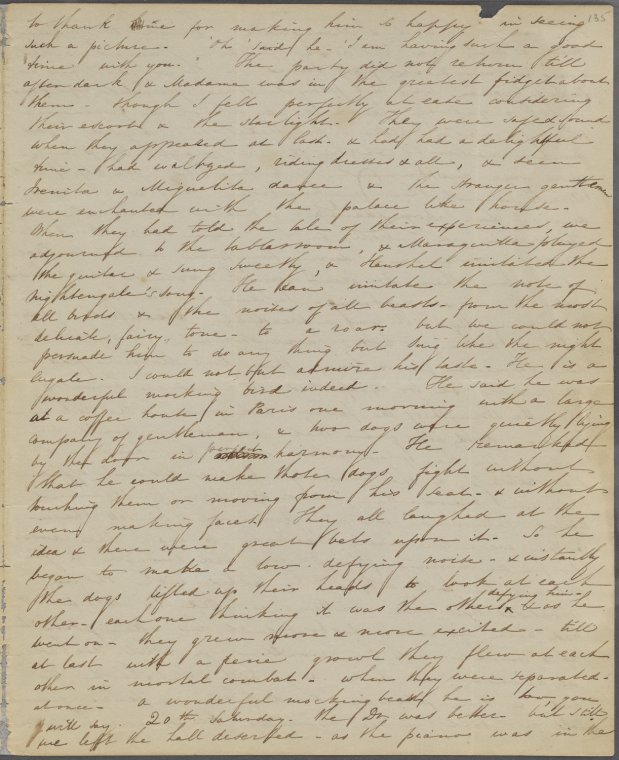 135
to thank me for making him so happy in seeing
such a picture. "Oh" said he "I am having such a good
time with you." The party did not return till
after dark & Madame was in the greatest fidget about
them - though I felt perfectly at ease considering
their escort & the starlight. They were safe & sound
when they appeared at last - & had had a delightful
time - had waltzed, riding dresses & all, & seen
& Miguelita dance & the stranger gentlemen
were enchanted with the palace like house -
When they had told the tale of their experiences, we
adjourned to the tablasroom, & played
the guitar & sung sweetly, & imitated the
nightengale's song. He can imitate the note of
all birds & the noises of all beasts - from the most
delicate, fairy tone - to a roar. but we could not
persuade him to do any thing but sing like the night
ingale. I could not but admire his taste - He is a
wonderful mocking bird indeed. He said he was
at a coffee house in Paris one morning with a large
company of gentlemen, & two dogs were quietly lying
by the door in perfect harmony - He remarked
that he could make those dogs fight without
touching them or moving from his seat - & without
even making faces. They all laughed at the
idea & there were great bets upon it - So he
began to make a low defying noise - & instantly
the dogs lifted up their heads to look at each
other - each one thinking it was the other defying him - & as he
went on - they grew more & more excited - till
at last with a growl they flew at each
other in mortal combat - when they were separated -
at once - a wonderful mocking beast he is too, you
will say. 20th Saturday. The Dr was better - but still
we left the hall deserted - as the piano was in the